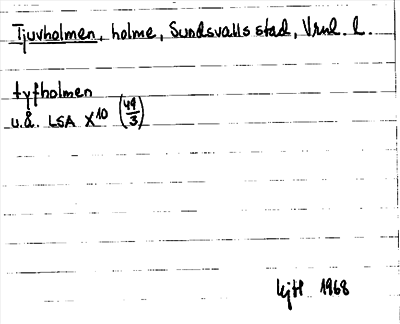 Tjuvholmen, holme, Sundsvalls stad, Vrnl. l.
tyfholmen
u.å. LSA X10 (49/3)
KjH 1968